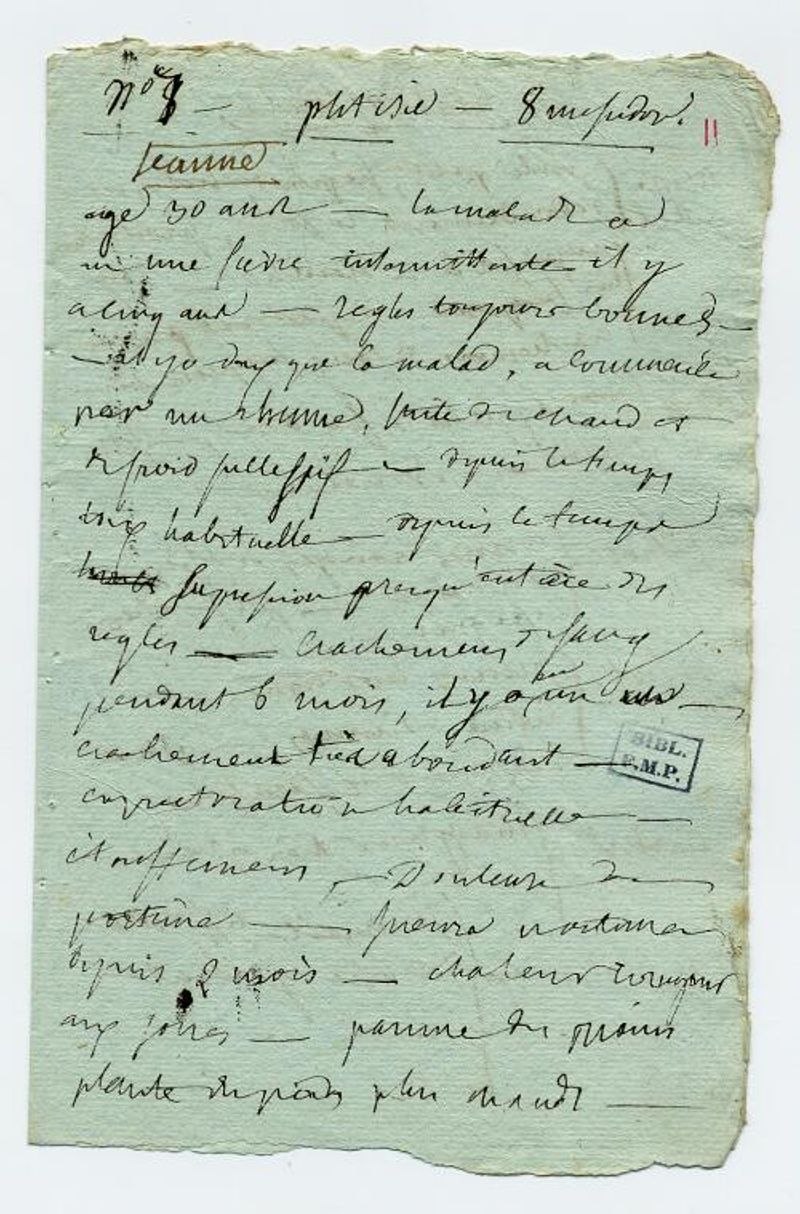 N° 8 — phtisie — 8 messidor.
11
jeanne
agé 30 ans — la malade a
eu une fièvre intermittente il y
a cinq ans — regles toujours bonnes —
— il y a que la malade, a commencé
par un rhume, suite de chaud et
de froid — depuis le temps
toux habituelle — depuis le temps
supression presqu'entière des
regles — crachement de sang
pendant 6 mois, il y a un an —
crachement très abondant —
BIBL.
F.M.P.
expectoration habituelle —
étouffemens, — Douleurs de
poitrine — sueurs nocturnes
depuis 2 mois — chaleur toujours
aux joues — paume des mains
plante des pieds plus chauds —